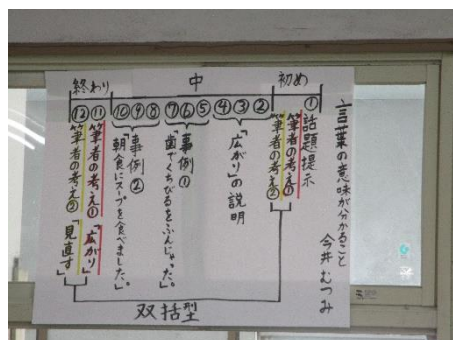 言葉の意味が分かること
今井むつみ
初め
中
終わり
①
話題提示
筆者の考え①
筆者の考え②
②
③
④
「広がり」の説明
⑤
⑥
⑦
事例①
「歯でくちびるをふんじゃった。」
⑧
⑨
⑩
事例②
「朝食にスープを食べました。」
⑪
筆者の考え①「広がり」
⑫
筆者の考え②「見直す」
双括型